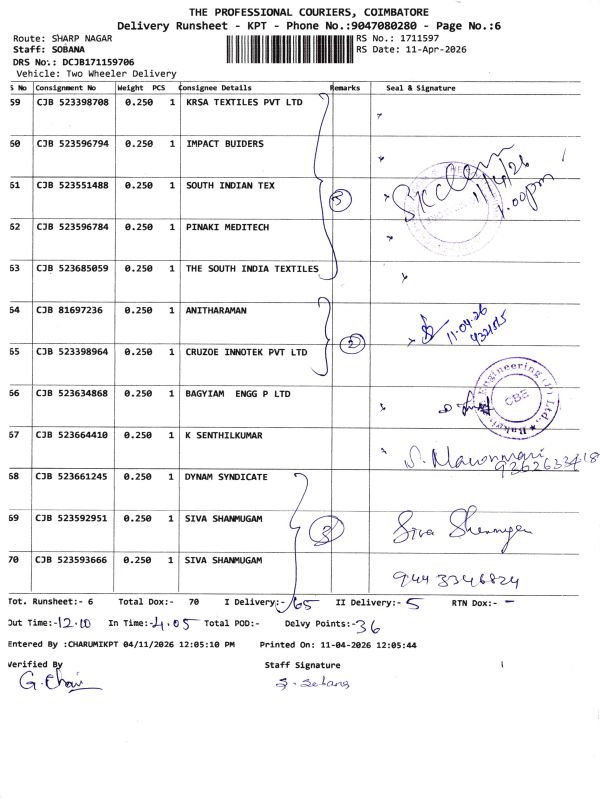 THE PROFESSIONAL COURIERS, COIMBATORE
Delivery Runsheet - KPT - Phone No.:9047080280 - Page No.:6
Route: SHARP NAGAR RS No.: 1711597
Staff: SOBANA RS Date: 11-Apr-2026
DRS No.: DCJB171159706
Vehicle: Two Wheeler Delivery
S No Consignment No Weight PCS Consignee Details Remarks Seal & Signature
59 CJB 523398708 0.250 1 KRSA TEXTILES PVT LTD
60 CJB 523596794 0.250 1 IMPACT BUIDERS
61 CJB 523551488 0.250 1 SOUTH INDIAN TEX 5 11/4/26
1.00pm
62 CJB 523596784 0.250 1 PINAKI MEDITECH
63 CJB 523685059 0.250 1 THE SOUTH INDIA TEXTILES
64 CJB 81697236 0.250 1 ANITHARAMAN 11-04-26
65 CJB 523398964 0.250 1 CRUZOE INNOTEK PVT LTD 2
66 CJB 523634868 0.250 1 BAGYIAM ENGG P LTD Engineering (P) Ltd., CBE
67 CJB 523664410 0.250 1 K SENTHILKUMAR
9262633418
68 CJB 523661245 0.250 1 DYNAM SYNDICATE
69 CJB 523592951 0.250 1 SIVA SHANMUGAM 3 Siva Shanmugam
70 CJB 523593666 0.250 1 SIVA SHANMUGAM 9443346824
Tot. Runsheet:- 6 Total Dox:- 70 I Delivery:- 65 II Delivery:- 5 RTN Dox:- -
Out Time:-12.10 In Time:-4.05 Total POD:- Delvy Points:-36
Entered By :CHARUMIKPT 04/11/2026 12:05:10 PM Printed On: 11-04-2026 12:05:44
Verified By Staff Signature